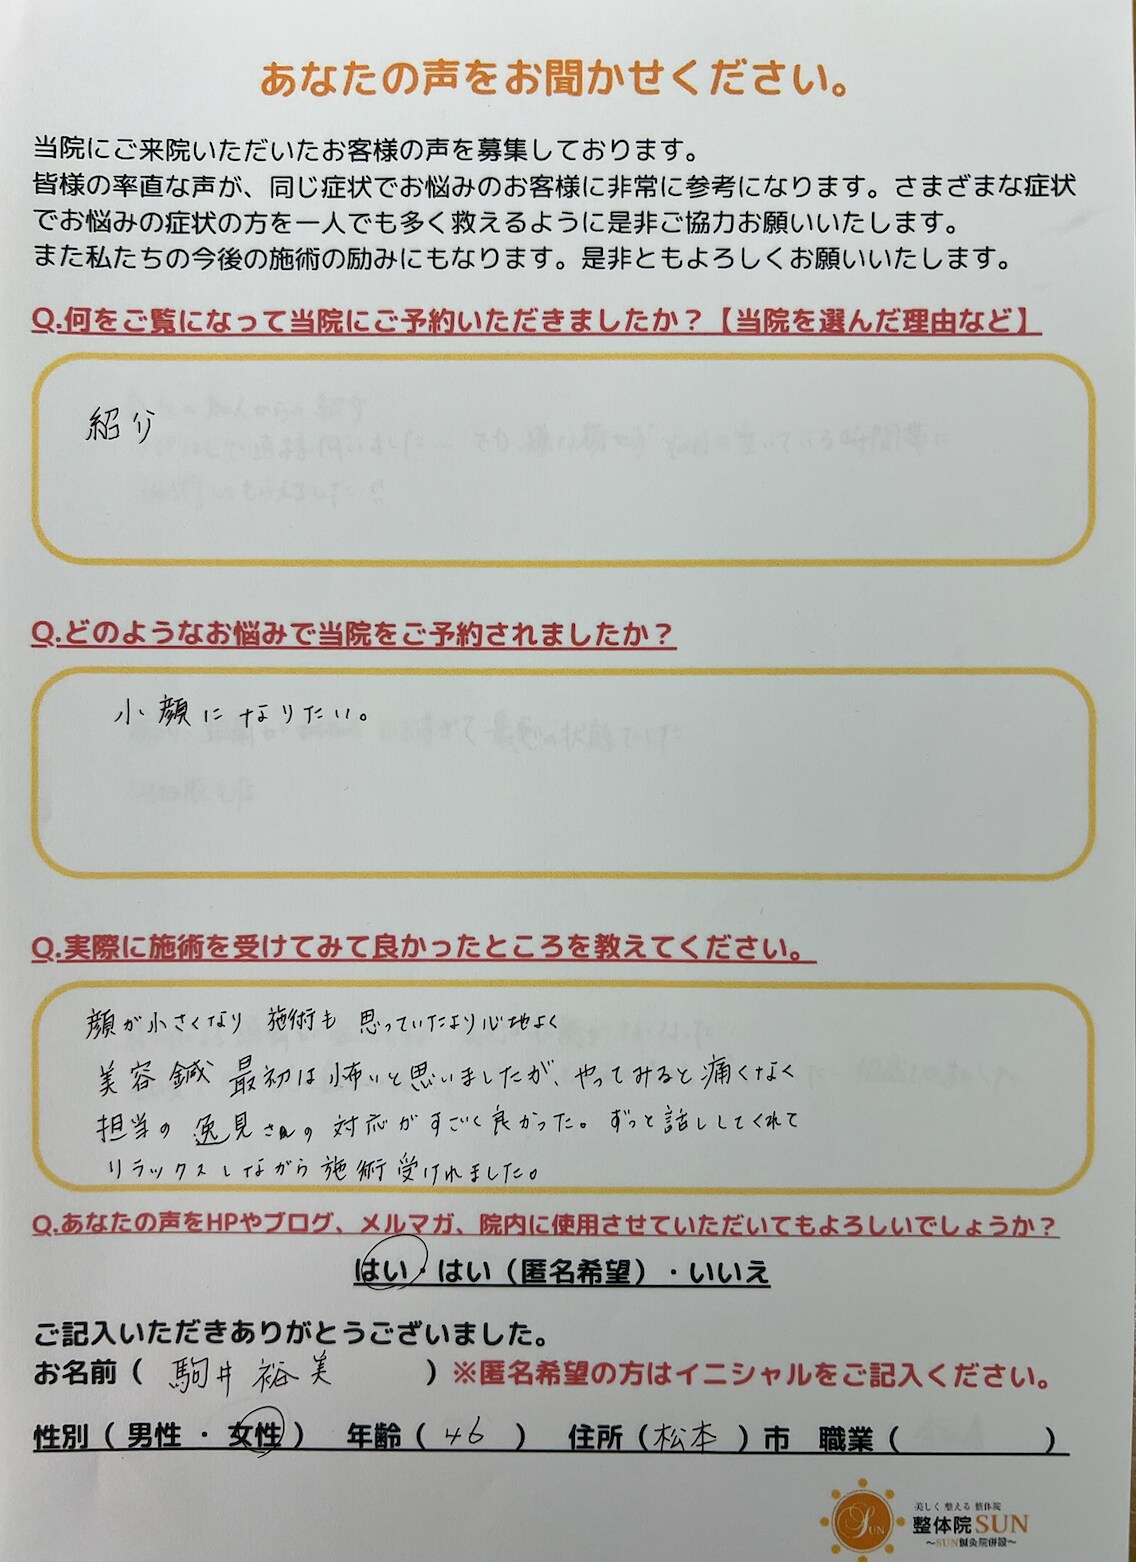 あなたの声をお聞かせください。
当院にご来院いただいたお客様の声を募集しております。
皆様の率直な声が、同じ症状でお悩みのお客様に非常に参考になります。さまざまな症状
でお悩みの症状の方を一人でも多く救えるように是非ご協力お願いいたします。
また私たちの今後の施術の励みにもなります。是非ともよろしくお願いいたします。
Q.何をご覧になって当院にご予約いただきましたか？【当院を選んだ理由など】
紹介
Q.どのようなお悩みで当院をご予約されましたか？
小顔になりたい。
Q.実際に施術を受けてみて良かったところを教えてください。
顔が小さくなり 施術も 思っていたより心地よく
美容鍼 最初は怖いと思いましたが、やってみると痛くなく
担当の逸見さんの 対応がすごく良かった。ずっと話ししてくれて
リラックスしながら施術受けれました。
Q.あなたの声をHPやブログ、メルマガ、院内に使用させていただいてもよろしいでしょうか？
はい・はい（匿名希望）・いいえ
ご記入いただきありがとうございました。
お名前（ 駒井 裕美 ）※匿名希望の方はイニシャルをご記入ください。
性別（ 男性 ・ 女性 ） 年齢（ 46 ） 住所（ 松本 ）市 職業（ ）
美しく整える 整体院
SUN 整体院SUN
〜SUN鍼灸院併設〜